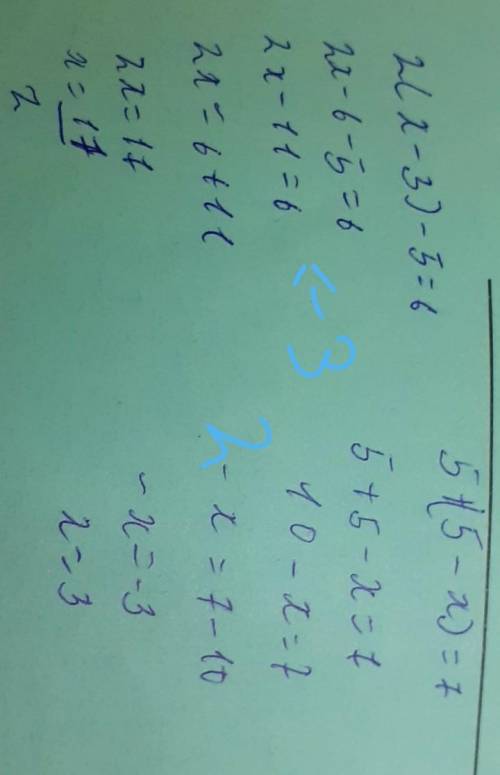 2(x-3)-5=6
2x-6-5=6
2x-11=6
2x=6+11
2x=17
x=17/2
← 3
5+(5-x)=7
5+5-x=7
10-x=7
2
-x=7-10
-x=-3
x=3